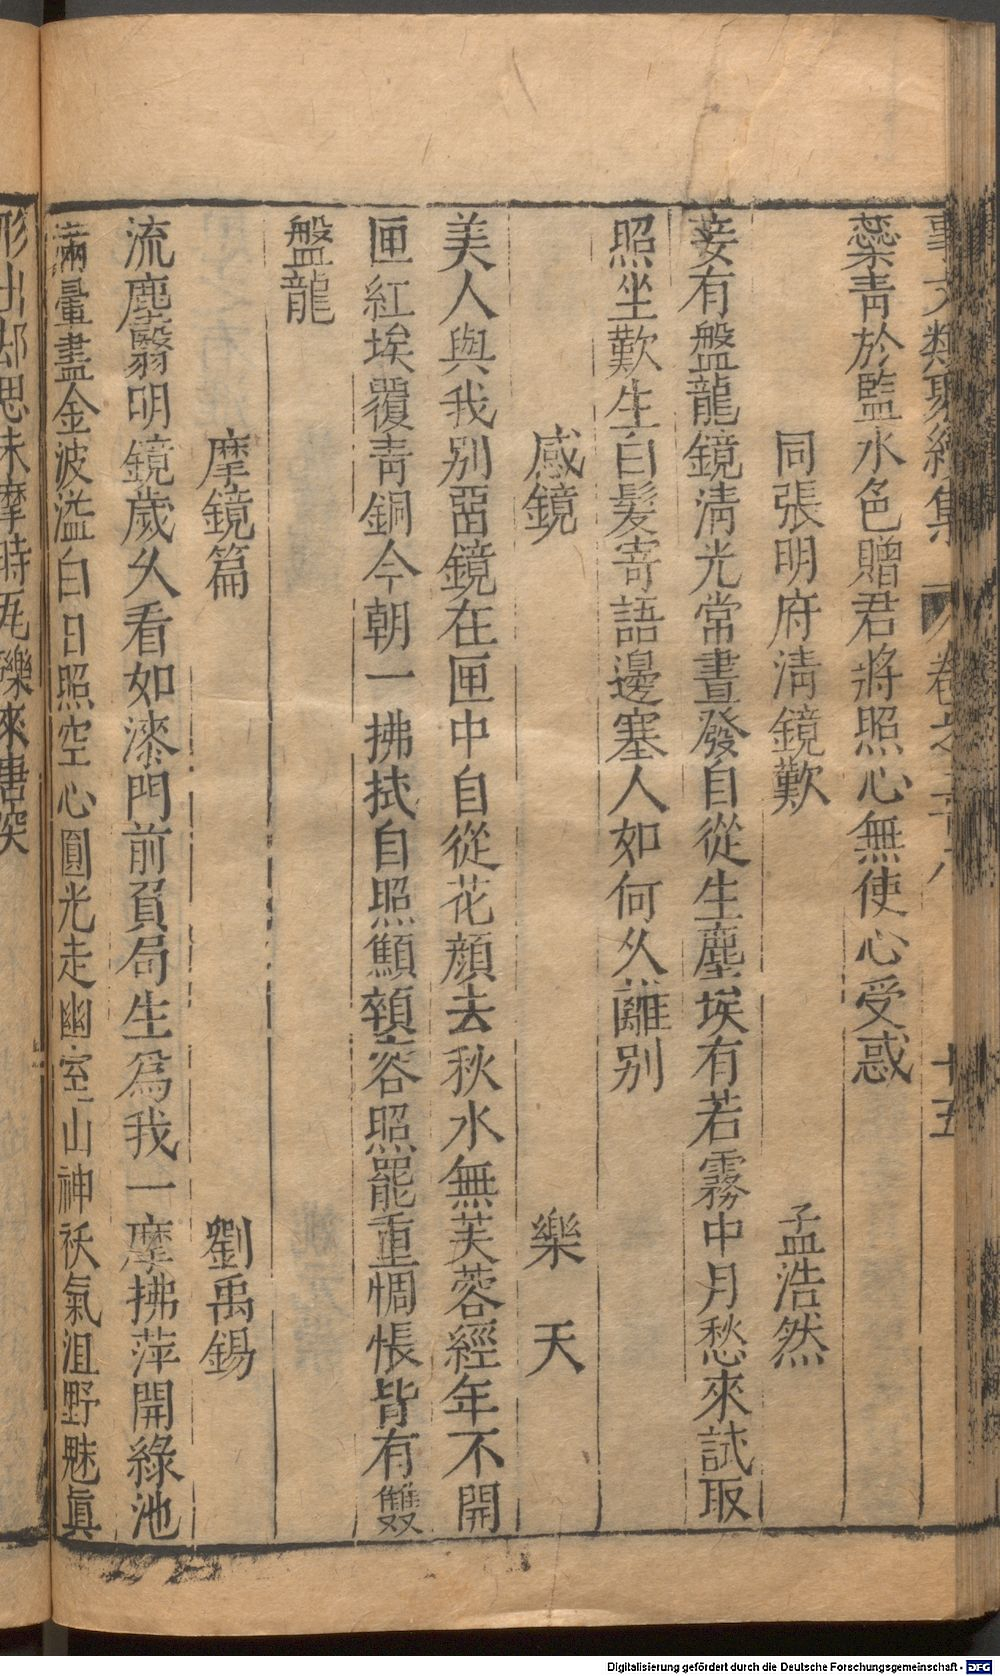 事文類聚續集 卷之二十八 十五
蘂靑於監水色贈君將照心無使心受惑
同張明府淸鏡歎 孟浩然
妾有盤龍鏡淸光常晝發自從生塵埃有若霧中月愁來試取
照坐歎生白髮寄語邊塞人如何久離别
感鏡 樂天
美人與我别畱鏡在匣中自從花顔去秋水無芙蓉經年不開
匣紅埃覆靑銅今朝一拂拭自照顦顇容照罷重惆悵背有雙
盤龍
摩鏡篇 劉禹錫
流塵翳明鏡歲久看如漆門前負局生爲我一摩拂萍開綠池
滿暈盡金波溢白日照空心圓光走幽室山神袄氣沮野魅眞
形出却思未摩時瓦礫來唐突
Digitalisierung gefördert durch die Deutsche Forschungsgemeinschaft - DFG